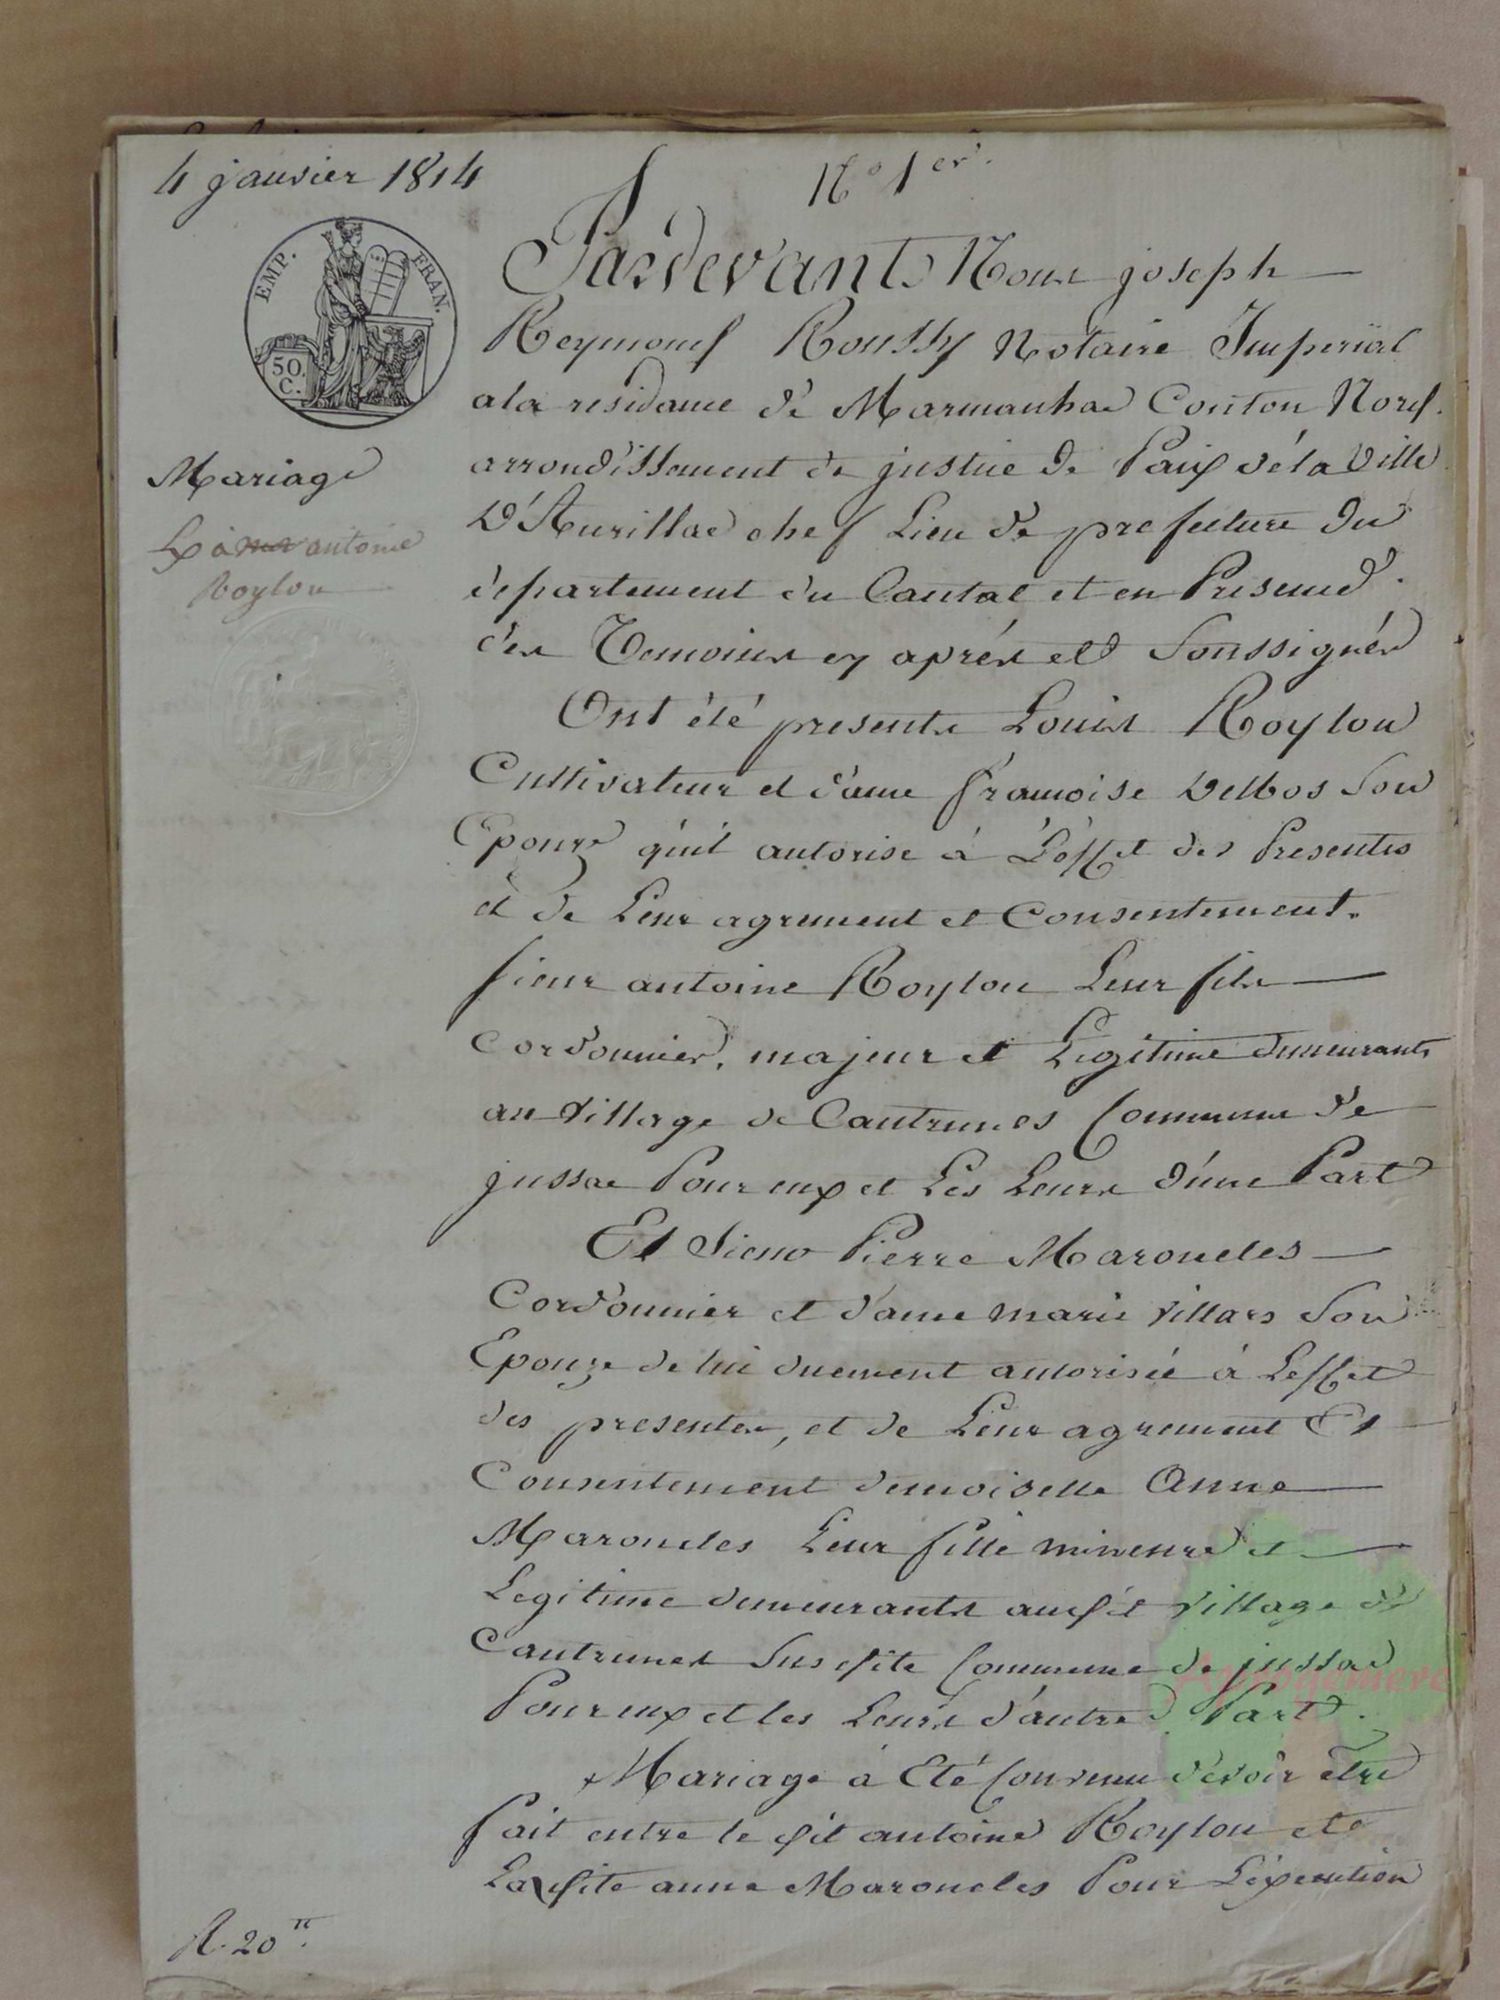 4 janvier 1814
N° 1er.
EMP. FRAN.
50 C.
Mariage
antoine
Roylou
Pardevant Nous joseph
Reymond Roussy Notaire Imperial
a la residance de Marmanhac Conton Nord.
arrondissement de justice de Paix de la Ville
D'Aurillac chef Lieu de prefecture du
departement du Cantal et en Presence
des Temoins cy aprés et Soussignés
Ont été presents Louis Roylou
Cultivateur et dame françoise Delbos Son
Epouze qu'il autorise à L'éffet des Presentes
et de Leur agrement et Consentement.
sieur antoine Roylou Leur fils
Cordonnier, majeur et Legitime demeurants
au Village de Cautrunes Commune de
jussac Pour eux et Les Leurs d'une Part
Et Sieur Pierre Maroncles
Cordonnier et dame marie Villars Son
Epouze de lui duement autorisée à Leffet
des presentes, et de Leur agrement Et
Consentement demoiselle Anne
Maroncles Leur fille mineure et
Legitime demeurants audit Village de
Cautrunes Susdite Commune de jussac
Pour eux et les Leurs d'autre Part.
Mariage à Eté Convenu dévoir etre
fait entre le dit antoine Roylou et
La dite anne Maroncles Pour L'éxecution
R. 20